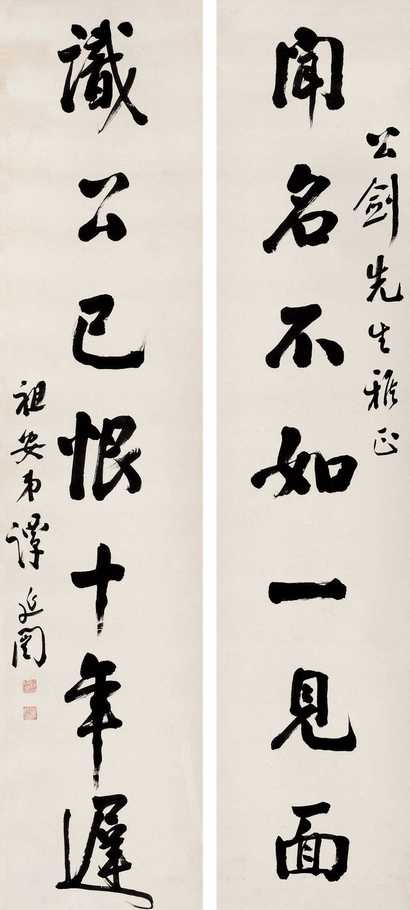 公劍先生雅正
聞名不如一見面
識公已恨十年遲
祖安弟譚延闓